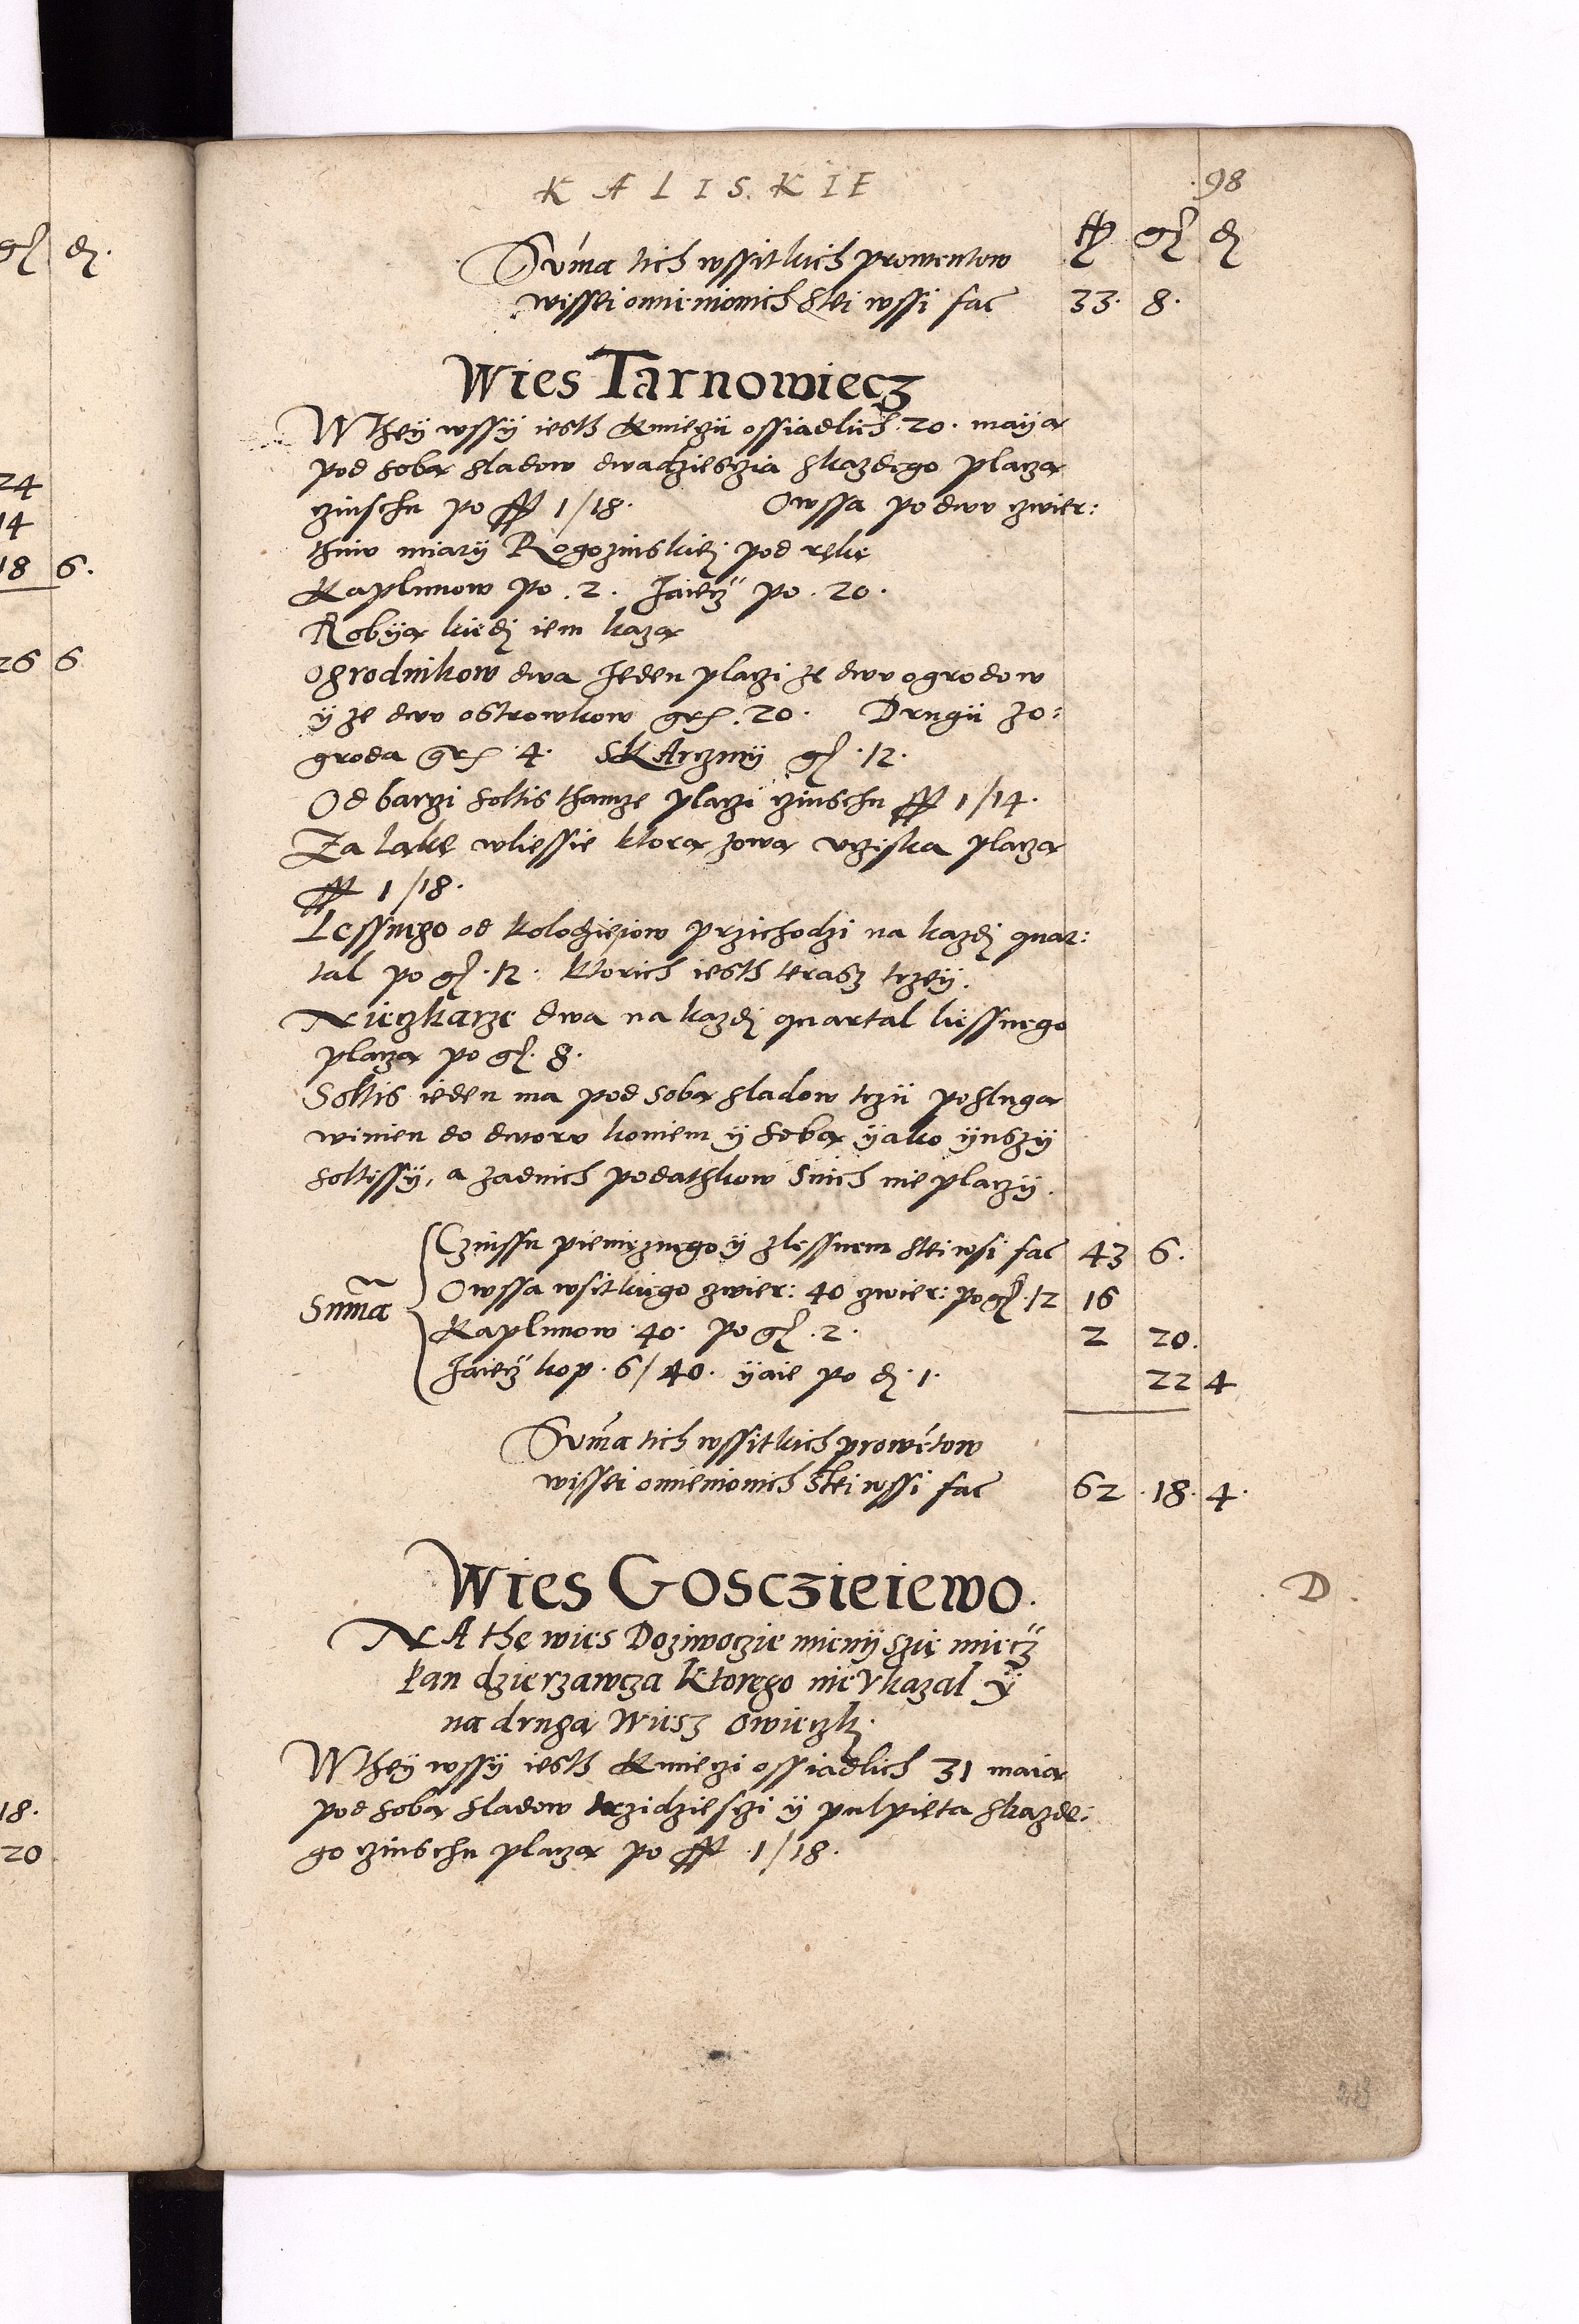 KALISKIE
98
fl gr d
Suma tich wssitkich prowentow
wissei omienionich stei wssi fac 33. 8.
Wies Tarnowiecz
W they wssÿ iesth Kmieczii ossiadlich 20. maÿa
pod soba sladow dwadziesczia skazdego placza
czinschu po fl 1/18. Owssa po dwv czwier:
thniv miarÿ Rogozinskiei pod reke
Kaplunow po .2. Jaiecz po .20.
Robÿa kiedi iem kaza
Ogrodnikow dwa Jeden placzi ze dwv ogrodow
ÿ ze dwv ostrowkow gr. 20. Drugii zo:
groda gr 4. SKArczmÿ gr .12.
Od barczi soltis thamze placzi czinschu fl 1/14.
Za lake wliessie ktora zowa vrziska placza
fl 1/18.
Lessnego od kolodzieiow przichodzi na kazdi quar:
tal po gr .12. ktorich iesth terasz trzeÿ.
Nieczkarze dwa na kazdi quartal liessnego
placza po gr. 8.
Soltis ieden ma pod soba sladow trzii poslugar
winien do dworv koniem ÿ soba ÿako ÿnszÿ
soltissÿ, a zadnich podathkow snich nie placzÿ.
Suma
Czinssu pienięznego ÿ zlessnem stei wsi fac 43 6.
Owssa wsitkiego czwier: 40 czwier: po gr .12 16
Kaplunow .40. po gr .2. 2 20.
Jaiecz kop .6/40. ÿaie po d .1. 22 4
Suma tich wssitkich prowetow
wissei omienionich stei wssi fac 62 .18. 4.
Wies Gosczieiewo.
D
NA the wies Doziwoczie mienÿ szie miecz
Pan dzierzawcza ktorego nie vkazal ÿ
na druga Wiesz Owieczki.
W theÿ wssÿ iesth Kmieczi ossiadlich 31 maia
pod soba sladow trzidziesczi ÿ pulpieta skazde:
go czinschu placza po fl .1/18.
gr d.
24
14
18 6.
26 6
18.
20